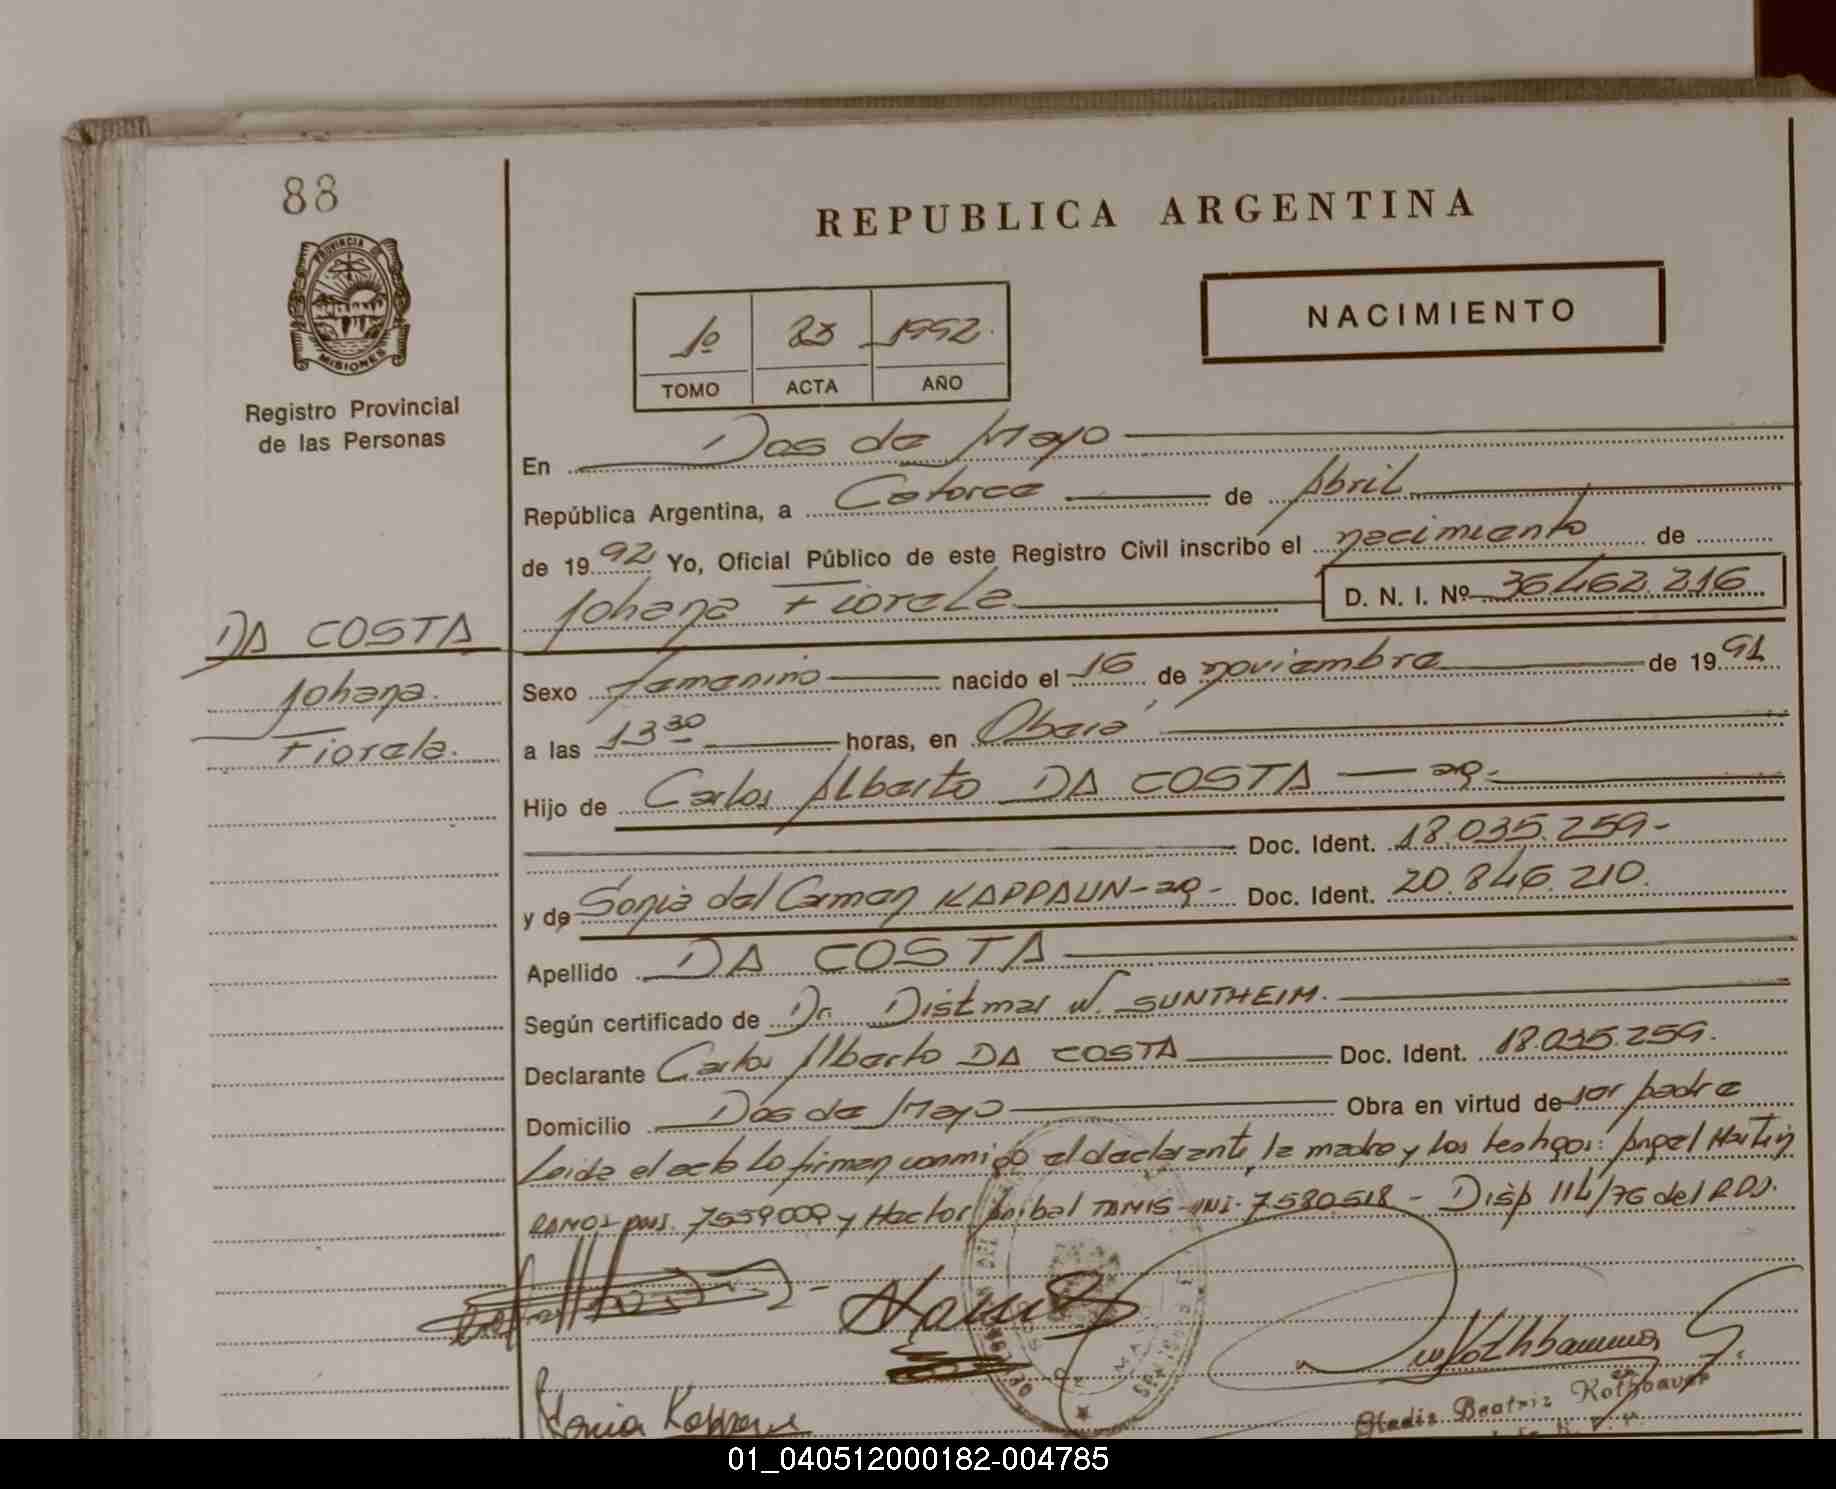 88
PROVINCIA DE
MISIONES
Registro Provincial
de las Personas
REPUBLICA ARGENTINA
NACIMIENTO
1º 88 1992.
TOMO ACTA AÑO
En Dos de Mayo
República Argentina, a Catorce de Abril
de 1992 Yo, Oficial Público de este Registro Civil inscribo el nacimiento de
Johana Fiorela D. N. I. Nº 36.462.216
DA COSTA
Johana.
Fiorela.
Sexo femenino nacido el 16 de noviembre de 1991
a las 13 30 horas, en Oberá
Hijo de Carlos Alberto DA COSTA - ag.-
Doc. Ident. 18.035.259-
y de Sonia del Carmen KAPPAUN-ag- Doc. Ident. 20.846.210.
Apellido DA COSTA
Según certificado de Dr. Distmar W. SUNTHEIM.
Declarante Carlos Alberto DA COSTA Doc. Ident. 18.035.259.
Domicilio Dos de Mayo Obra en virtud de ser padre
Leida el acta lo firman conmigo el declarante, la madre y los testigos: Angel Martin
RAMOS 7559009 y Hector Anibal TANIS 7.580.518 - Disp 114/76 del
Sonia Kappaun
Gladis Beatriz
01_040512000182-004785